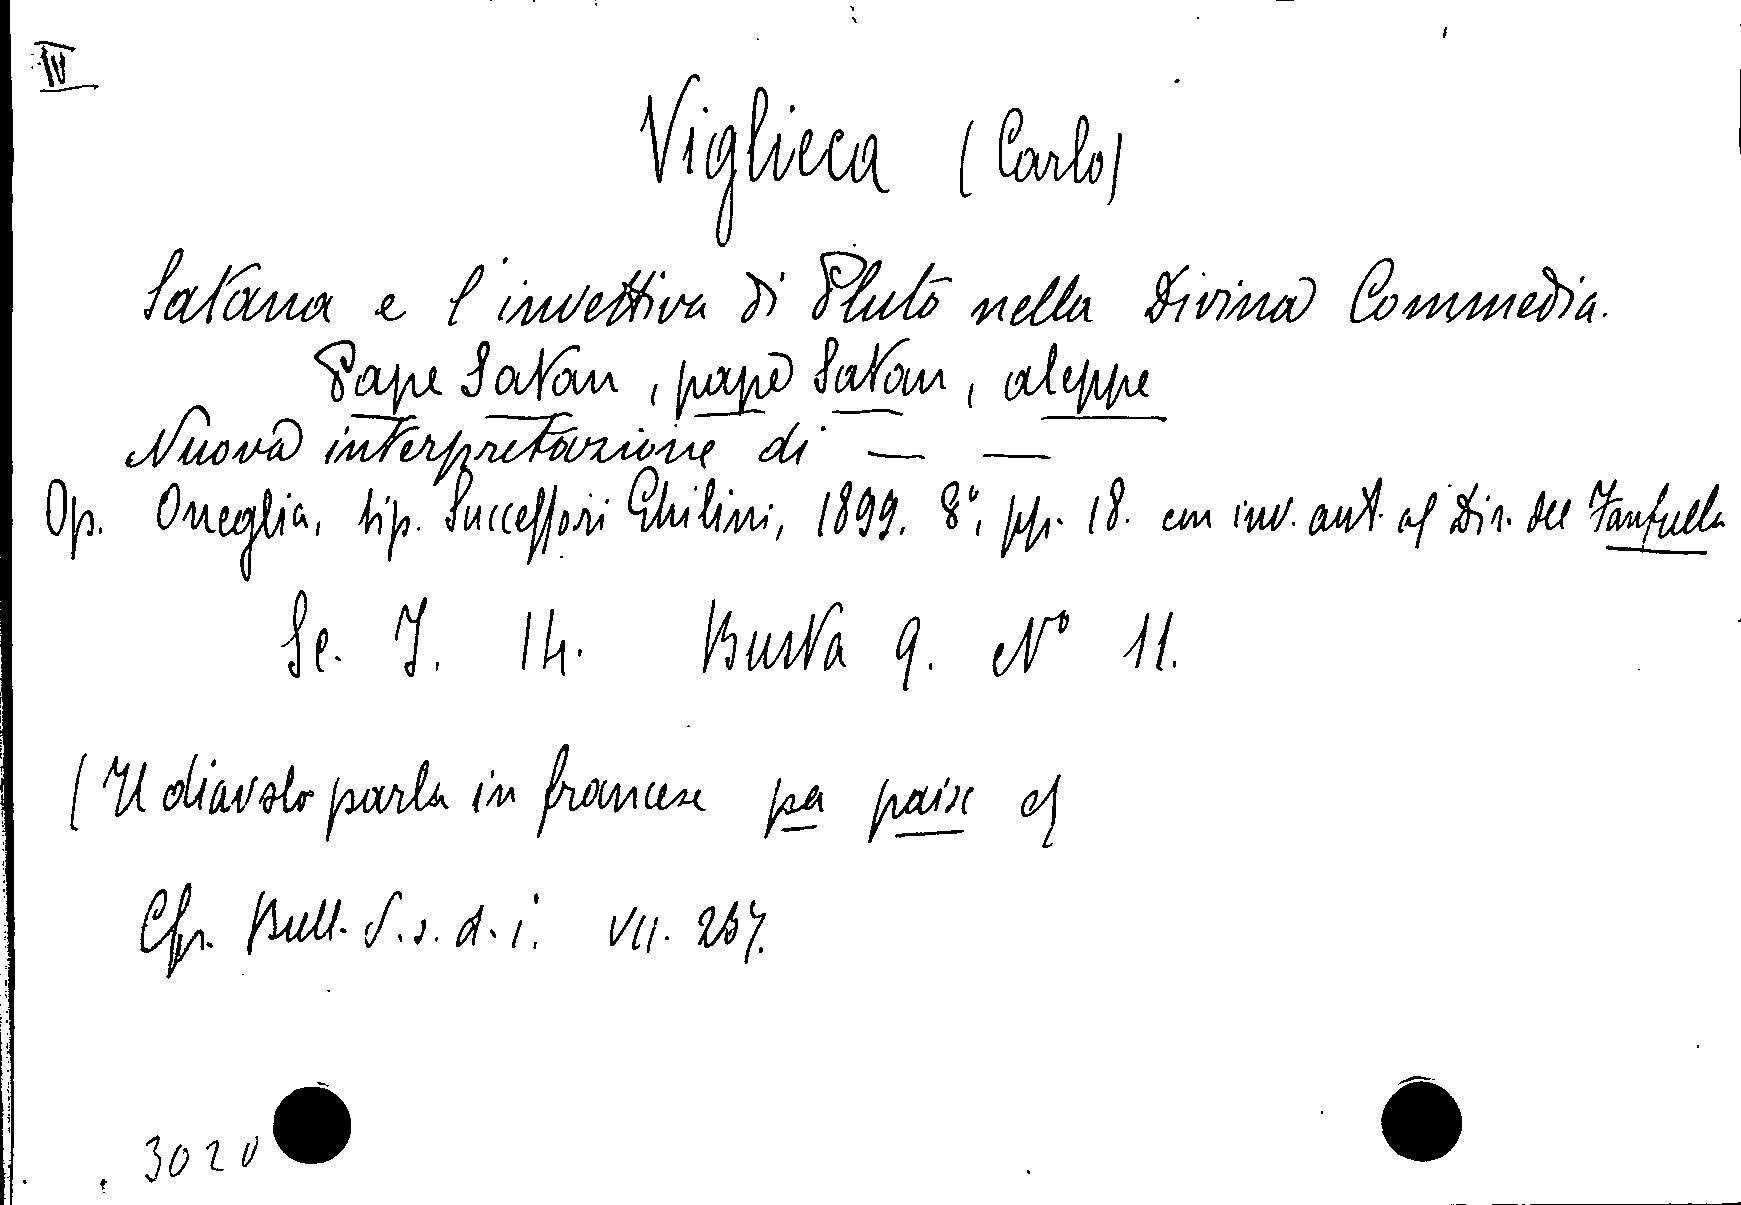 IV
Viglieca (Carlo)
Satana e l'invettiva di Pluto nella Divina Commedia.
Pape Satan, pape Satan, aleppe
Nuova interpretazione di — —
Op. Oneglia, tip. Successori Ghilini, 1899. 8°, pp. 18. con inv. aut. al Dir. del Fanfulla
Sc. I. 14. Busta 9. N° 11.
(Il diavolo parla in francese pa paix
Cfr. Bull. S. s. d. i. VII. 237.
3020